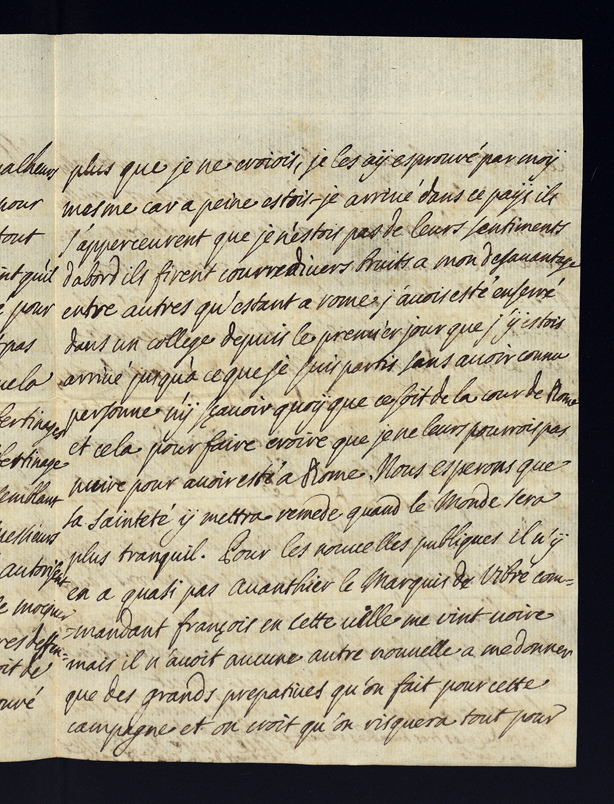 alheurs
pour
tout
nt qu'il
e pour
pas
ue la
bertinage
bertinage
semblant
messieurs
autorisent
le moquer
res dessu=
oit de
ouvé
plus que je ne croiois, je les aÿ esprouvé par moÿ
mesme car a peine estois-je arrivé dans ce païs ils
s'apperceurent que je n'estois pas de leurs sentiments
d'abord ils firent courre divers bruits a mon desavantage
entre autres qu'estant a rome j'avois esté enserré
dans un college depuis le premier jour que j'ÿ estois
arrivé jusqu'a ce que je suis partis sans avoir connu
personne nÿ sçavoir quoÿ que ce soit de la cour de Rome
et cela pour faire croire que je ne leurs pourrois pas
nuire pour avoir esté a Rome. Nous esperons que
sa Sainteté ÿ mettra remede quand le Monde sera
plus tranquil. Pour les nouvelles publiques il n'ÿ
en a quasi pas avanthier le Marquis de Vibre com=
=mandant françois en cette ville me vint voire
mais il n'avoit aucune autre nouvelle a me donner
que des grands prepatives qu'on fait pour cette
campagne et on croit qu'on risquera tout pour